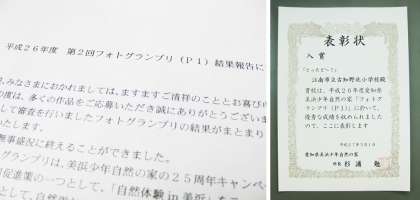 平成26年度 第2回フォトグランプリ(P1)結果報告に
みなさまにおかれましては、ますますご清祥のこととお喜び
の度は、多くの作品をご応募いただき誠にありがとうござい
して審査を行いましたフォトグランプリの結果がまとまり
無事盛況に終えることができました。
グランプリは、美浜少年自然の家の25周年キャンペ
促進業の一つとして、「自然体験in美浜」を
表彰状
入賞
「とったどー!」
江南市立古知野北小学校殿
貴校は、平成26年度愛知県
美浜少年自然の家「フォトグ
ランプリ(P1)」において、
優秀な成績を収められました
ので、ここに表彰します
愛知県美浜少年自然の家
杉浦 勉